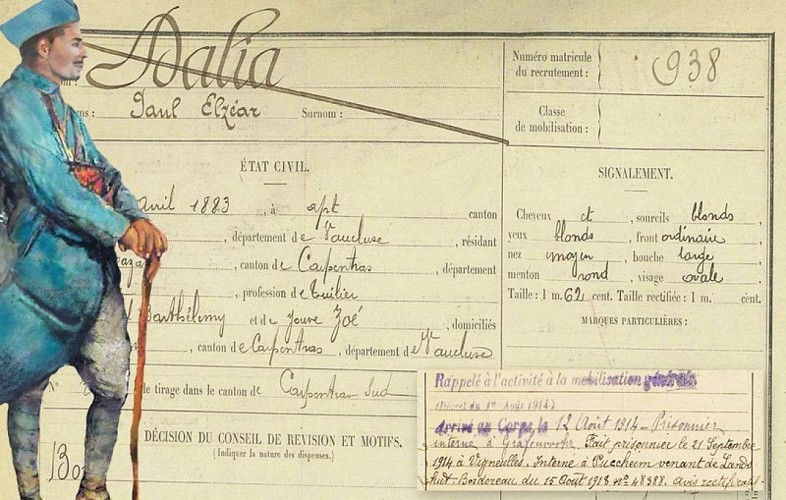 Dalia
Numéro matricule
du recrutement :
938
Paul Elzéar Surnom :
Classe
de mobilisation :
ÉTAT CIVIL.
SIGNALEMENT.
avril 1883, à apt canton
, département de Vaucluse, résidant
, canton de Carpentras, département
, profession de tuilier
Barthélemy et de Jouve Zoé, domiciliés
, canton de Carpentras, département de Vaucluse
de tirage dans le canton de Carpentras Sud
Cheveux et, sourcils blonds,
yeux blonds, front ordinaire,
nez moyen, bouche large,
menton rond, visage ovale
Taille : 1 m. 62 cent. Taille rectifiée : 1 m. cent.
MARQUES PARTICULIÈRES :
DÉCISION DU CONSEIL DE REVISION ET MOTIFS.
(Indiquer la nature des dispenses.)
Rappelé à l'activité à la mobilisation générale.
1er Août 1914)
arrivé au Corps le 12 Août 1914 - Prisonnier
interné à Grafenwohr. Fait prisonnier le 21 Septembre
1914 à Vigneulles. Interné à Puccheim venant de Lands
hut - Bordereau du 15 Août 1918 No 48388. avis rectificatif